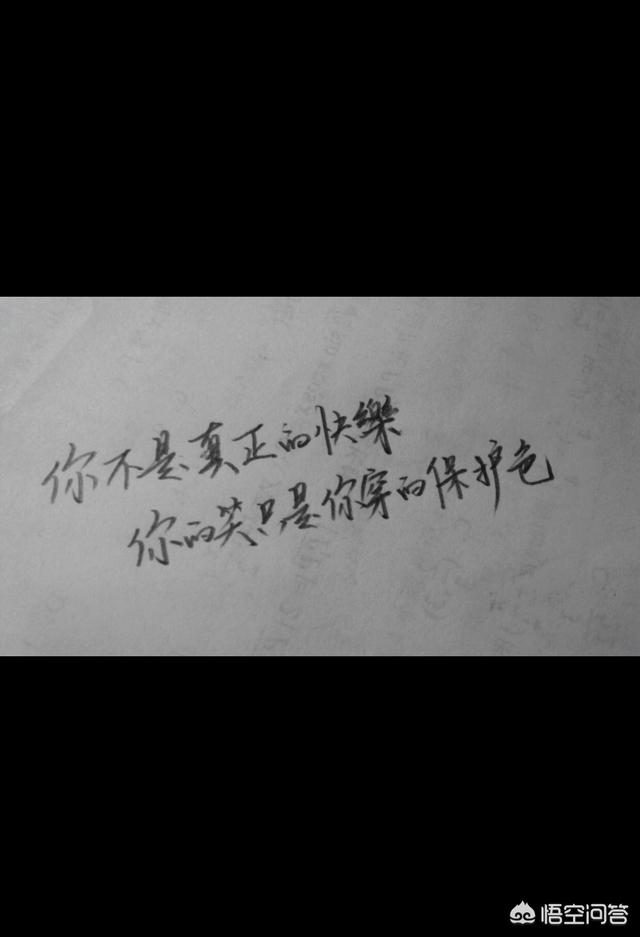 你不是真正的快樂
你的笑只是你穿的保护色
悟空问答